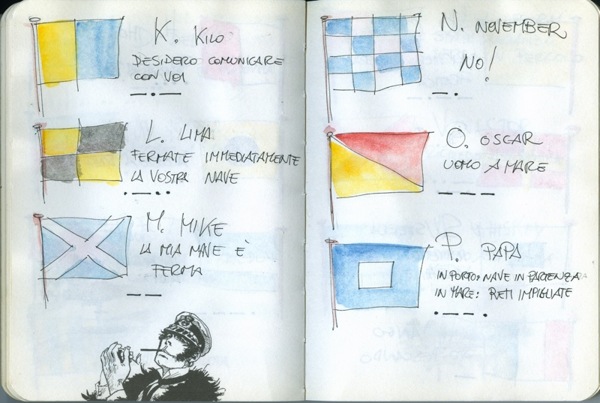 K. KILO
DESIDERO COMUNICARE
CON VOI
—·—
L. LIMA
FERMATE IMMEDIATAMENTE
LA VOSTRA NAVE
·—··
M. MIKE
LA MIA NAVE È
FERMA
——
N. NOVEMBER
NO!
—·
O. OSCAR
UOMO A MARE
———
P. PAPA
IN PORTO: NAVE IN PARTENZA
IN MARE: RETI IMPIGLIATE
·——·